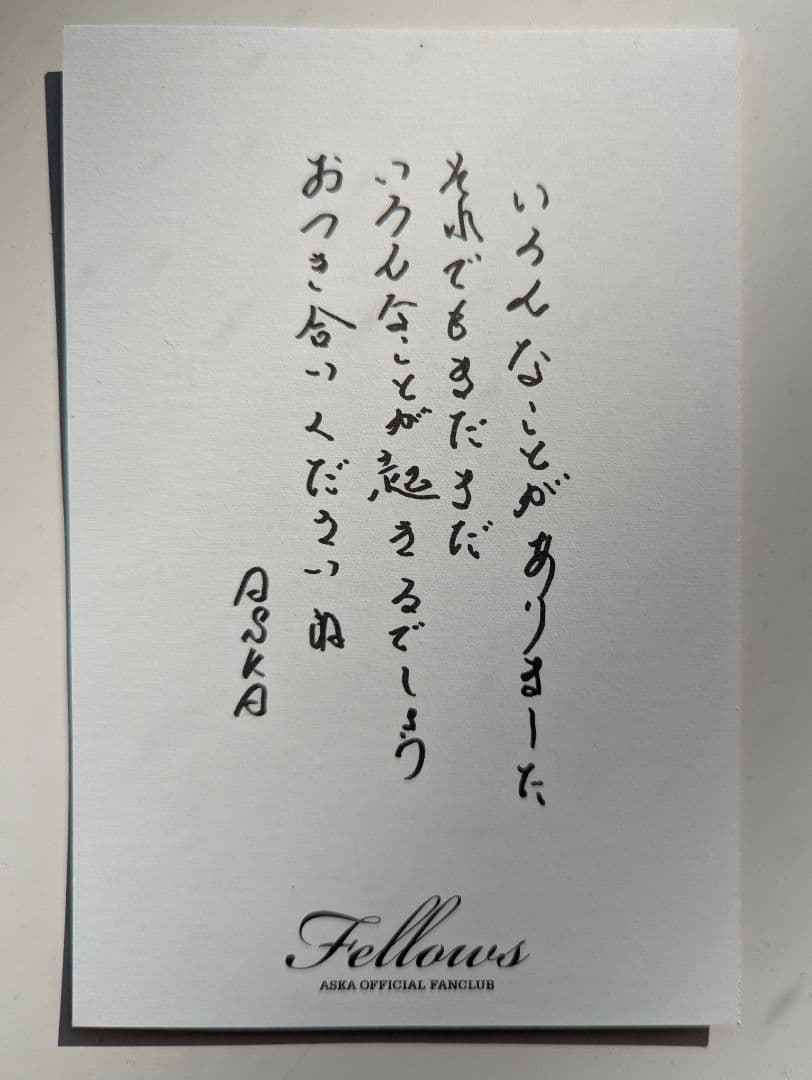 いろんなことがありました
それでもまだまだ
いろんなことが起きるでしょう
おつき合いくださいね
ASKA
Fellows
ASKA OFFICIAL FANCLUB